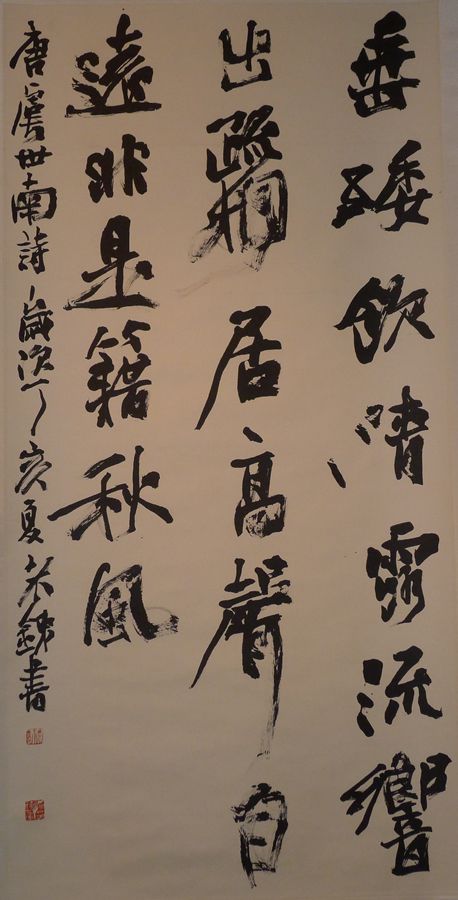 垂緌飲清露流響
出疏桐居高聲自
遠非是籍秋風
唐虞世南詩歲次丁亥夏書